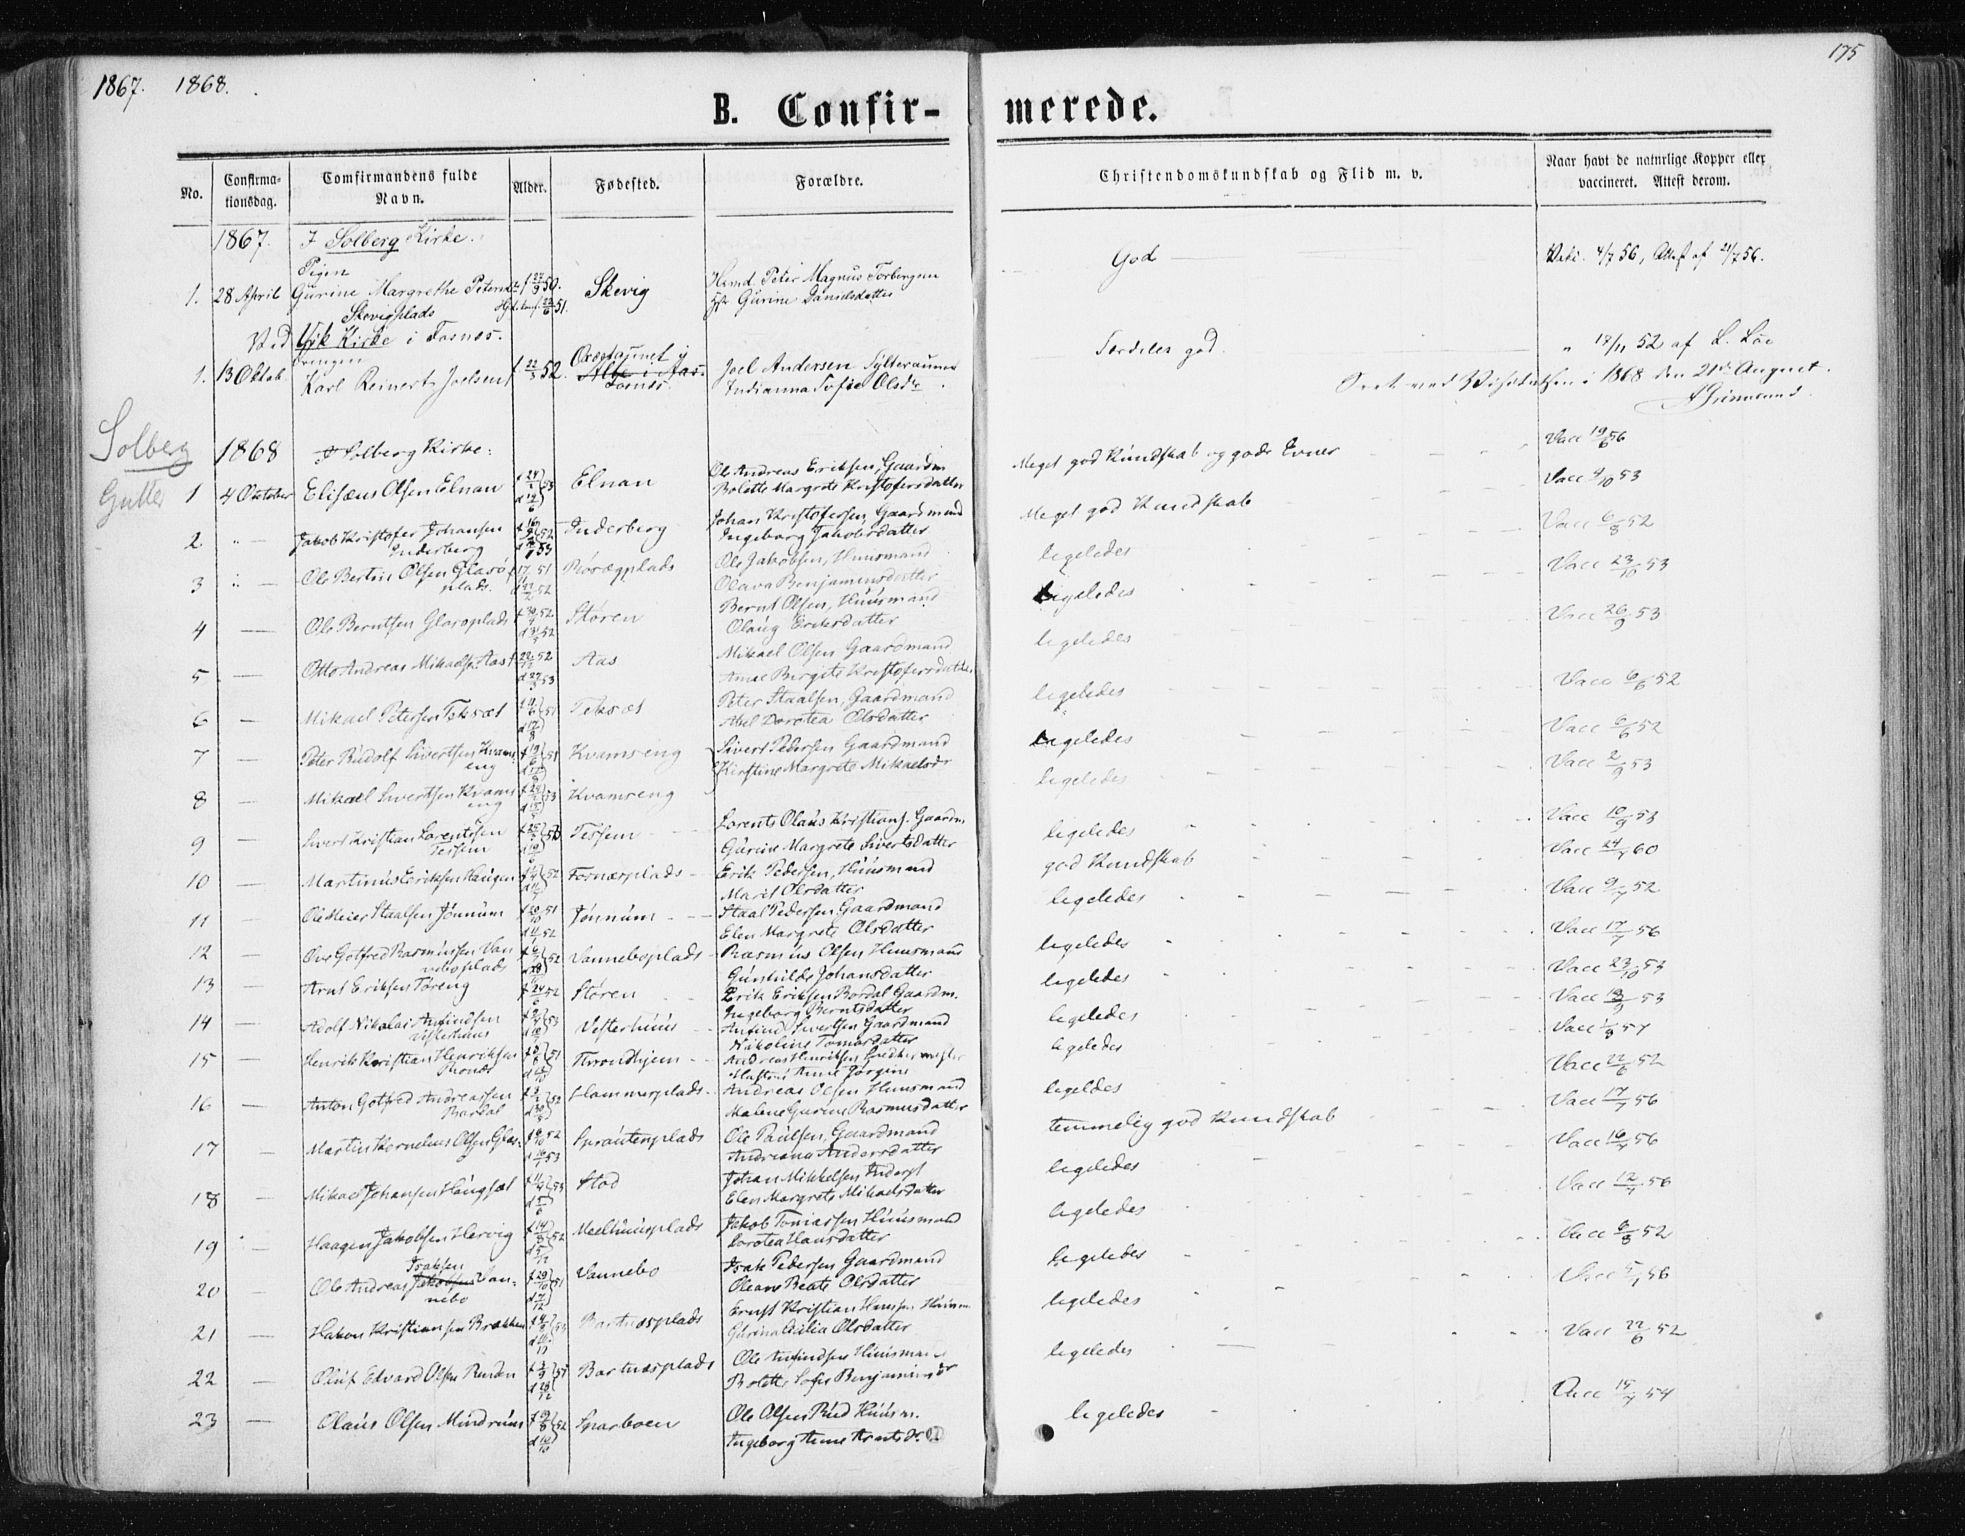 1867. 1868.
175
B. Confirmerede.
No.
Confirmationsdag.
Comfirmandens fulde Navn.
Alder.
Fødested.
Forældre.
Christendomskundskab og Flid m. v.
Naar havt de naturlige Kopper eller vaccineret. Attest derom.
1867. I Solberg Kirke.
Pigen
1. 28 April Gurine Margrethe Petersdtr Skevigplads f 50. Skevig Huusmd. Peter Magnus Torbergsen Gurine Danielsdatter God 4/7 56, Attest af 21/7 56.
Ved Vik Kirke i Fosnes.
Drengen
1. 13 Oktob. Karl Reinert Joelsen f 22/3 52. Joel Andersen Indianna Sofie Olsdtr Særdeles god. 18/11 52 af L. Lie
Seet ved Visitatsen i 1868 den 21de August.
Solberg
Gutter
1868 I Solberg Kirke:
1 4 October Elisæus Olsen Elnan 53 Elnan Ole Andreas Eriksen, Gaardm. Bolette Margrete Kristofersdatter Meget god Kundskab og gode Evner Vacc 19/6 56
2 " — Jakob Kristofer Johansen Inderberg 52 53 Inderberg Johan Kristofersen, Gaardmand Ingeborg Jakobsdatter Meget god Kundskab Vacc 9/10 53
3 " — Ole Bertin Olsen Glasøplads 51 52 Røsægplads Ole Jakobsen, Huusmand Olava Benjaminsdatter ligeledes Vacc 6/8 52
4 — Ole Berntsen Glasøplads 52 52 Støren Bernt Olsen, Huusmand Olaug Eriksdatter Ligeledes Vacc 23/10 53
5 — Otto Andreas Mikaelsen Aas 52 53 Aas Mikael Olsen Gaardmand Ane Birgite Kristofersdatter ligeledes Vacc 26/9 53
6 — Mikael Petersen Teksæt 51 Teksæt Peter Staalsen, Gaardmand Abel Dorotea Olsdatter ligeledes Vacc 6/6 52
7 — Peter Rudolf Sivertsen Kvamseng 51 Kvamseng Sivert Pedersen Gaardmand Kirstine Margrete Mikaelsdr ligeledes Vacc 6/6 52
8 — Mikael Sivertsen Kvamseng 53 Kvamseng ligeledes Vacc 2/9 53
9 — Sivert Kristian Lorentssen Tessem 53 Tessem Lorents Olaus Kristians. Gaardm. Gurine Margrete Sivertsdatter ligeledes Vacc 10/9 53
10 — Martinus Eriksen Haugen 52 Fornæsplads Erik Pedersen, Huusmand Marit Olsdatter god Kundskab Vacc 24/7 60
11 — Ole Meier Staalsen Jønnum 51 52 Jønnum Staal Pedersen Gaardmand Elen Margrete Olsdatter ligeledes Vacc 9/7 52
12 — Ove Gotfred Rasmussen Vanneboplads 52 Vanneboplads Rasmus Olsen Huusmand Gunhilde Johansdatter ligeledes Vacc 17/7 56
13 — Arnt Eriksen Tøreng 52 Støren Erik Eriksen Bardal Gaardm. Ingeborg Berntsdatter ligeledes Vacc 23/10 53
14 — Adolf Nikolai Anfindsen Vesterhuus 53 Vesterhuus Anfind Sivertsen Gaardmand Nikoline Tomasdatter ligeledes Vacc 53
15 — Henrik Kristian Henriksen 51 Throndhjem Andreas Henriksen Anne Jørgine ligeledes Vacc 57
16 — Anton Gotfred Andreassen Bardal 52 Hammerplads Andreas Olsen Huusmand Malene Gurine Rasmusdatter ligeledes Vacc 22/6 52
17 — Martin Kornelius Olsen 52 53 Sprautenplads Ole Paulsen, Gaardmand Andreana Andersdatter temmelig god Kundskab Vacc 17/7 56
18 — Mikael Johansen Haugsæt Stod Johan Mikkelsen Inderst Elen Margrete Mikaelsdatter ligeledes Vacc 16/7 56
19 — Haagen Jakobsen Hervig 52 Meelhuusplads Jakob Tomassen Huusmand Dorotea Hansdatter ligeledes Vacc 12/7 56
20 — Ole Andreas Isaksen Vannebo 51 Vannebo Isak Pedersen Gaardmand Oleane Beate Olsdatter ligeledes Vacc 6/8 52
21 — Hakon Kristiansen Brakken Bartnæsplads Ernst Kristian Hansen Huusm. Gurina Cecilia Olsdatter ligeledes Vacc 56
22 — Oluf Edvard Olsen Bartnæsplads Ole Anfindsen Huusmand Bolette Sofie Benjaminsdr ligeledes Vacc 22/6 52
23 — Olaus Olsen Mindrum 52 Sparboen Ole Olsen Rud Huusm. Ingeborg Anne Arntsdr. ligeledes Vacc 15/7 54